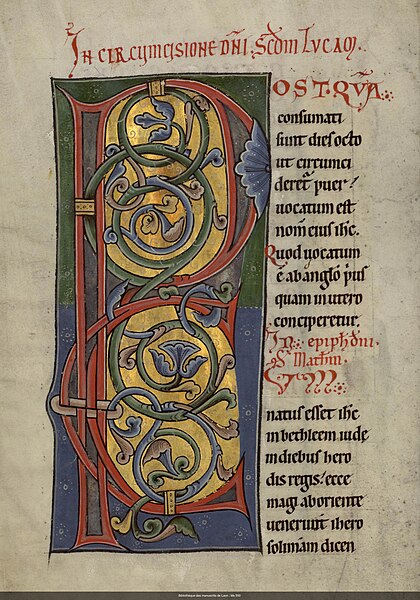 IN CIRCUMCISIONE DNI. SCDM LUCAM.
POSTQVA
consumati
sunt dies octo
ut circumci
deret̄ puer.
uocatum est
nom̄ eius ihc.
Quod uocatum
ē ab anglo p̄us
quam in utero
conciperetur.
In epiph dni.
S. Mathm.
CUM
natus esset ihc
in bethleem iude
in diebus hero
dis regis: ecce
magi ab oriente
uenerunt ihero
solimam dicen
Bibliothèque des manuscrits de Laon - Ms 550